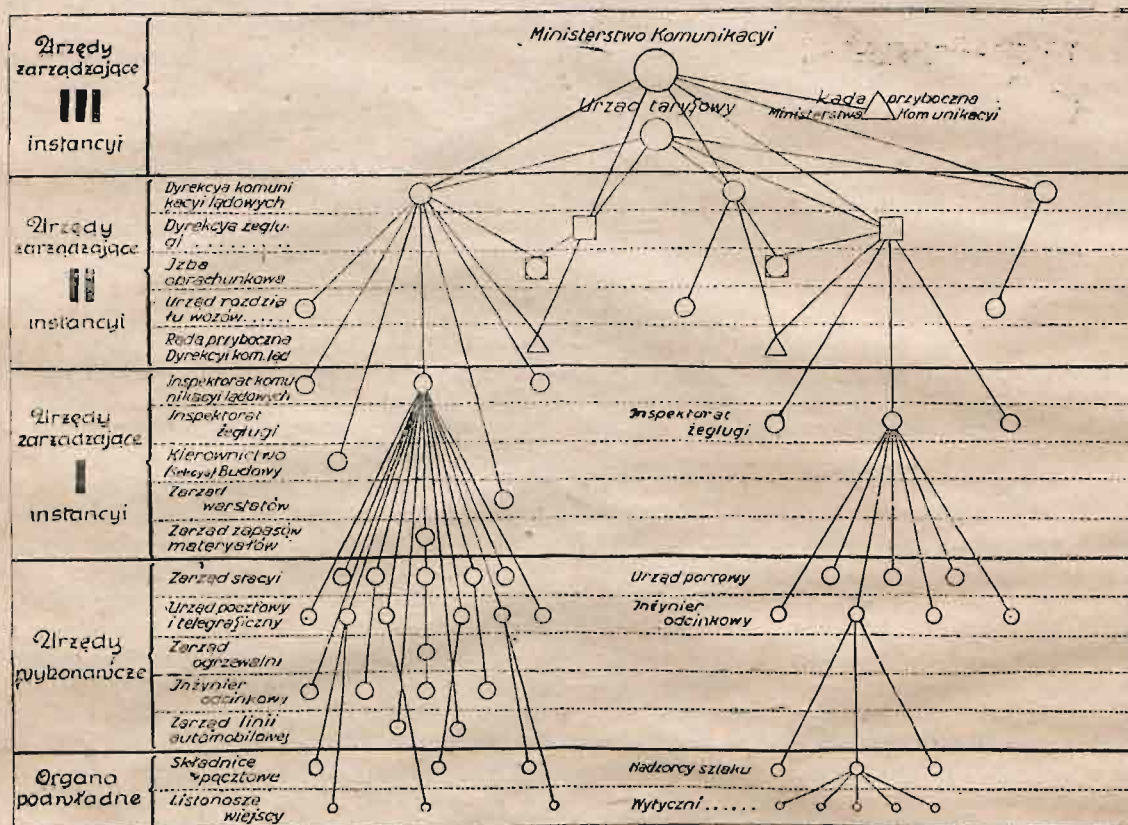 Urzędy
zarządzające
III
instancyi
Ministerstwo Komunikacyi
Urząd taryfowy
Rada przyboczna
Ministerstwa Komunikacyi
Urzędy
zarządzające
II
instancyi
Dyrekcya komuni
kacyi lądowych
Dyrekcya żeglu-
gi ..........
Jzba
obrachunkowa
Urząd rozdzia
łu wozów......
Rada przyboczna
Dyrekcyi kom. ląd
Urzędy
zarządzające
I
instancyi
Inspektorat komu
nikacyi lądowych
Inspektorat
żeglugi
Kierownictwo
(Sekcya) Budowy
Zarząd
warsztatów
Zarząd zapasów
materyałów
Inspektorat
żeglugi
Urzędy
wykonawcze
Zarząd stacyi
Urząd pocztowy
i telegraficzny
Zarząd
ogrzewalni
Jnżynier
odcinkowy
Zarząd linii
automobilowej
Urząd portowy
Jnżynier
odcinkowy
Organa
podwładne
Składnice
pocztowe
Listonosze
wiejscy
Nadzorcy szlaku
Wytyczni ......